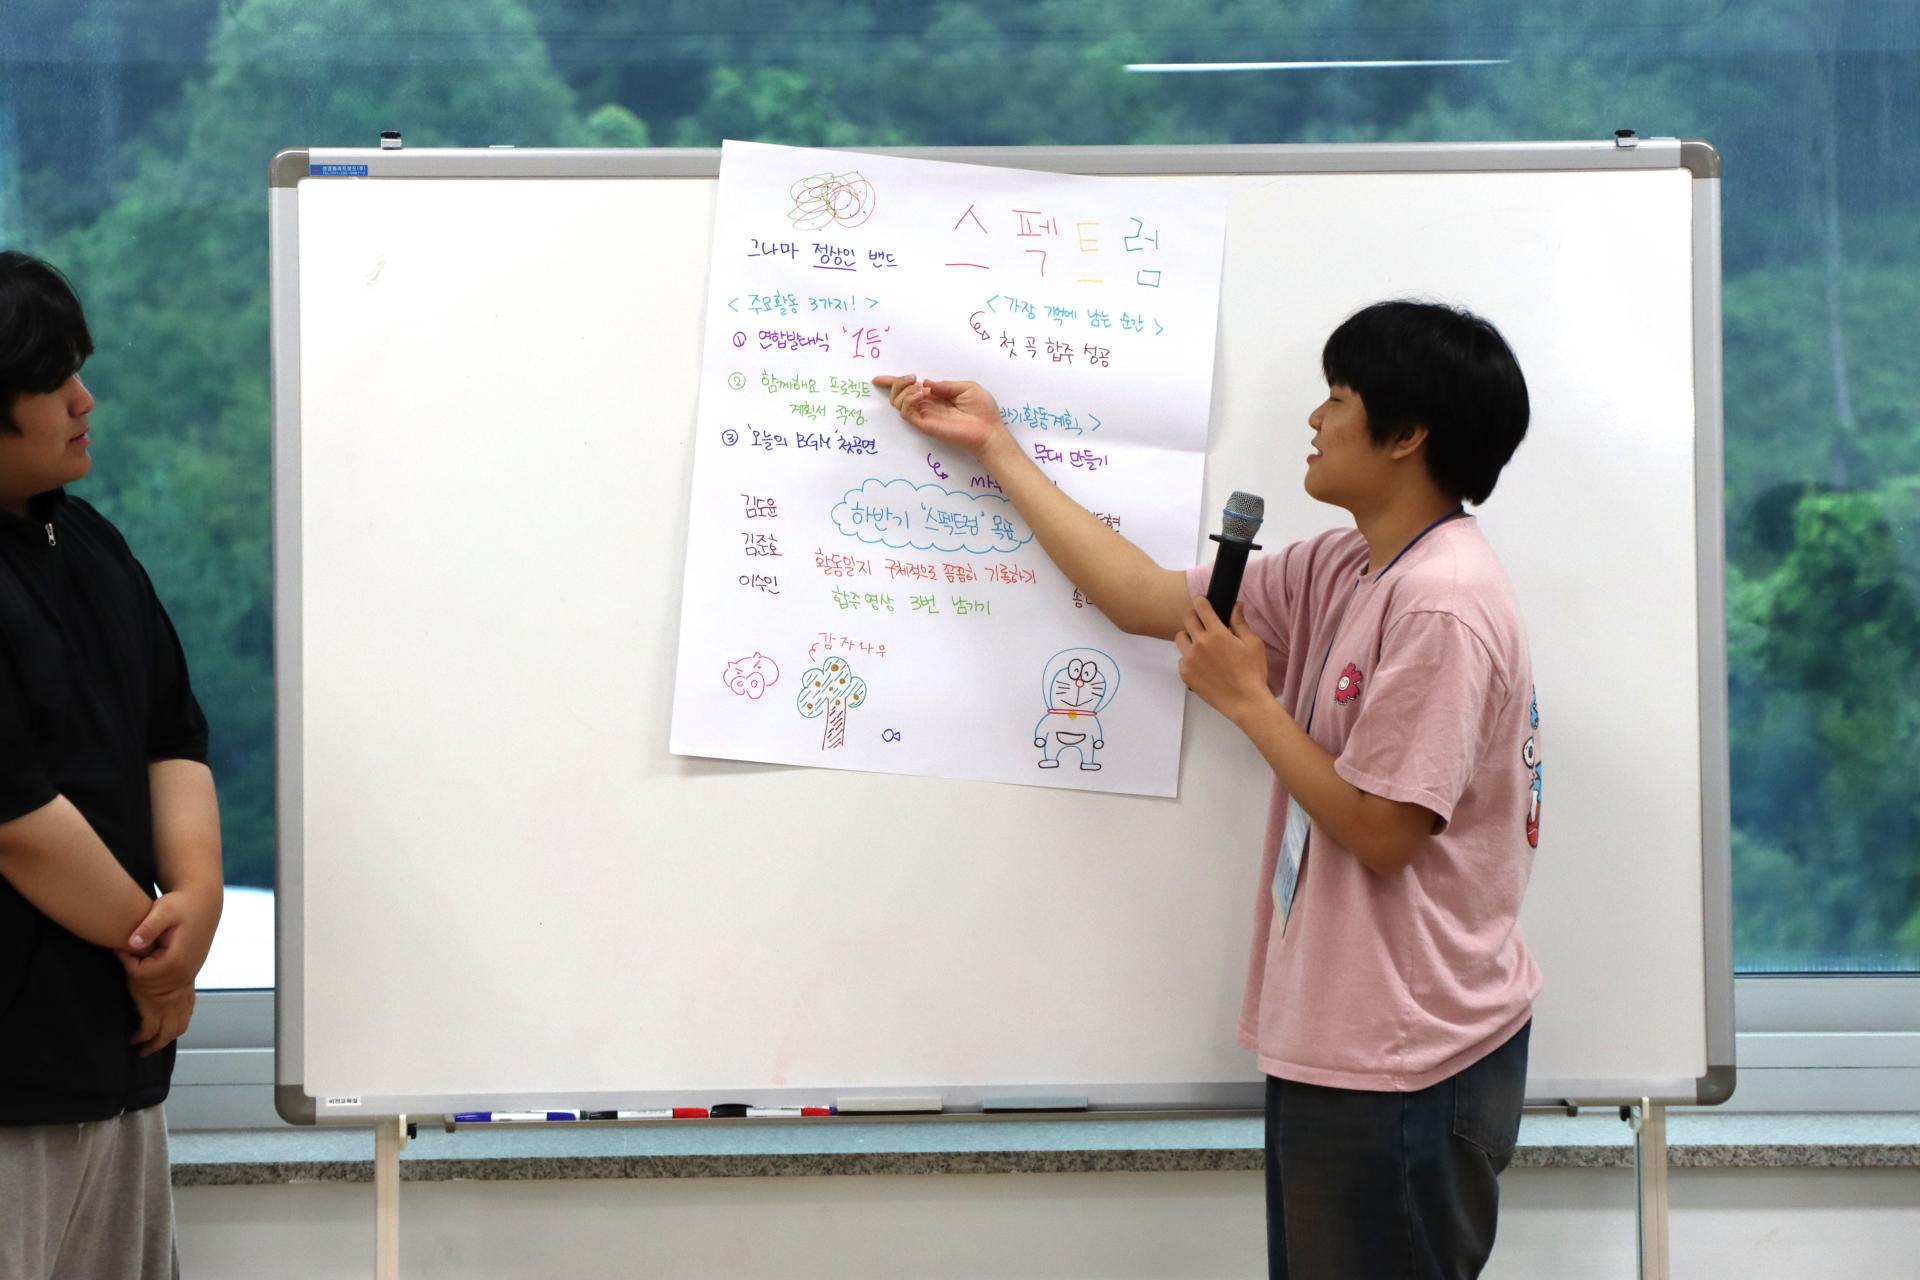 스펙트럼
그나마 정상인 밴드
< 주요활동 3가지! >
① 연합발대식 '1등'
② 함께해요 프로젝트
계획서 작성
③ '오늘의 BGM' 첫공연
< 가장 기억에 남는 순간 >
첫 곡 합주 성공
반기활동계획 >
무대 만들기
하반기 '스펙트럼' 목표
활동일지 구체적으로 꼼꼼히 기록하기
합주 영상 3번 남기기
김도윤
김준호
이수인
감자나무